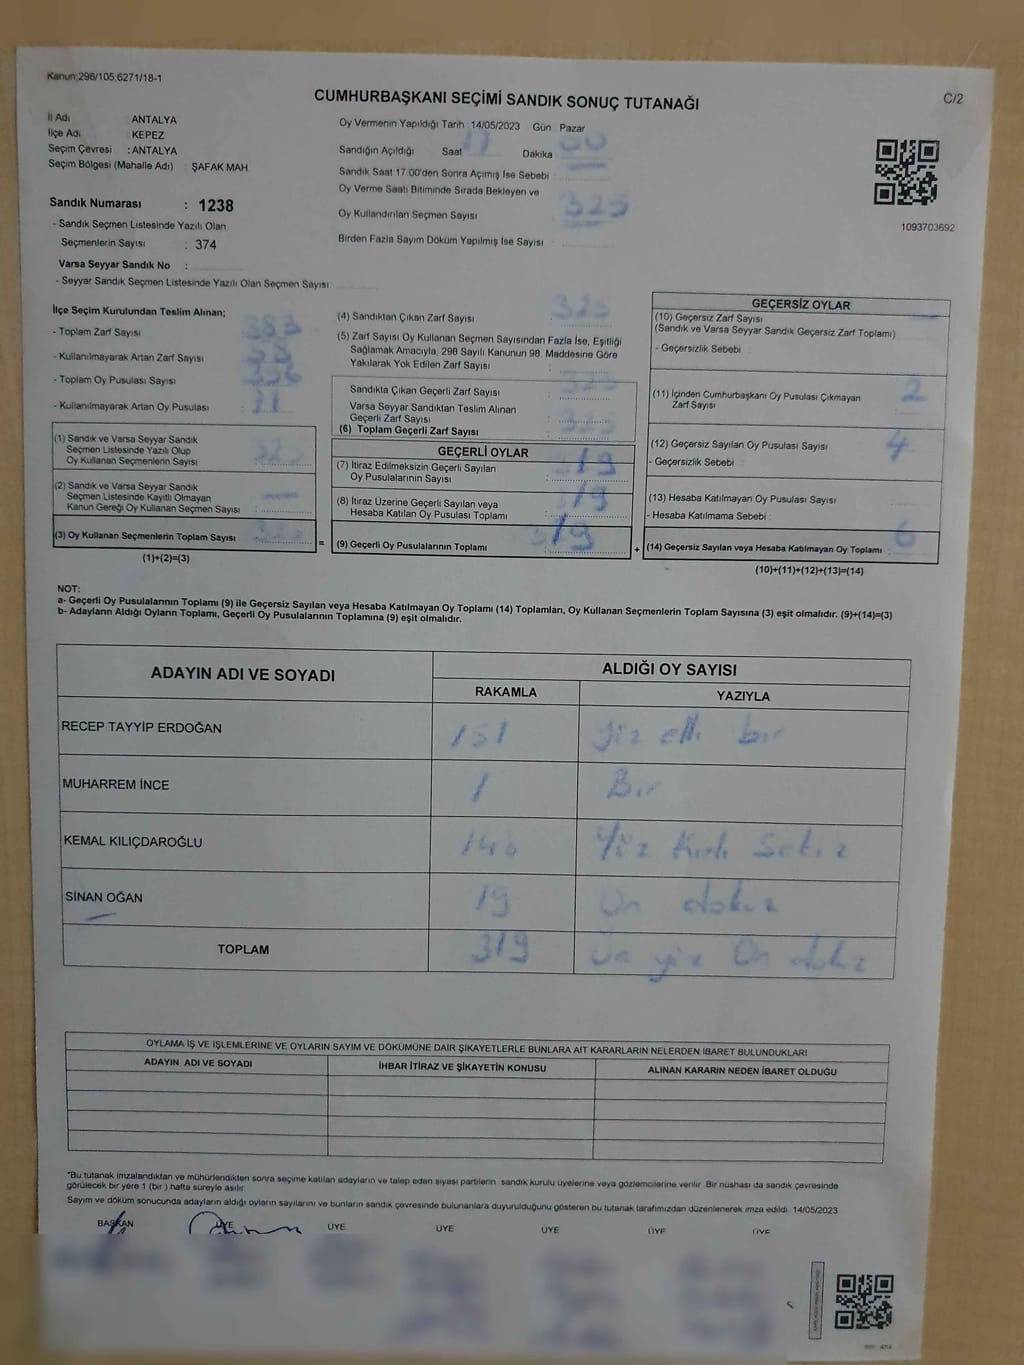 Kanun:298/105;6271/18-1
C/2
CUMHURBAŞKANI SEÇİMİ SANDIK SONUÇ TUTANAĞI
İl Adı ANTALYA
İlçe Adı : KEPEZ
Seçim Çevresi : ANTALYA
Seçim Bölgesi (Mahalle Adı) : ŞAFAK MAH
Sandık Numarası : 1238
- Sandık Seçmen Listesinde Yazılı Olan
Seçmenlerin Sayısı : 374
Varsa Seyyar Sandık No :
- Seyyar Sandık Seçmen Listesinde Yazılı Olan Seçmen Sayısı:
Oy Vermenin Yapıldığı Tarih 14/05/2023 Gün Pazar
Sandığın Açıldığı Saat 17 Dakika 00
Sandık Saat 17:00'den Sonra Açımış İse Sebebi :
Oy Verme Saati Bitiminde Sırada Bekleyen ve
Oy Kullandırılan Seçmen Sayısı 325
Birden Fazla Sayım Döküm Yapılmış İse Sayısı :
1093703692
İlçe Seçim Kurulundan Teslim Alınan;
- Toplam Zarf Sayısı 383
- Kullanılmayarak Artan Zarf Sayısı
- Toplam Oy Pusulası Sayısı
- Kullanılmayarak Artan Oy Pusulası
(1) Sandık ve Varsa Seyyar Sandık
Seçmen Listesinde Yazılı Olup
Oy Kullanan Seçmenlerin Sayısı 325
(2) Sandık ve Varsa Seyyar Sandık
Seçmen Listesinde Kayıtlı Olmayan
Kanun Gereği Oy Kullanan Seçmen Sayısı :
(3) Oy Kullanan Seçmenlerin Toplam Sayısı 325
(1)+(2)=(3)
(4) Sandıktan Çıkan Zarf Sayısı : 325
(5) Zarf Sayısı Oy Kullanan Seçmen Sayısından Fazla İse, Eşitliği
Sağlamak Amacıyla, 298 Sayılı Kanunun 98. Maddesine Göre
Yakılarak Yok Edilen Zarf Sayısı :
Sandıkta Çıkan Geçerli Zarf Sayısı : 325
Varsa Seyyar Sandıktan Teslim Alınan
Geçerli Zarf Sayısı :
(6) Toplam Geçerli Zarf Sayısı : 325
GEÇERLİ OYLAR
(7) İtiraz Edilmeksizin Geçerli Sayılan
Oy Pusulalarının Sayısı : 319
(8) İtiraz Üzerine Geçerli Sayılan veya
Hesaba Katılan Oy Pusulası Toplamı : 319
= (9) Geçerli Oy Pusulalarının Toplamı : 319
GEÇERSİZ OYLAR
(10) Geçersiz Zarf Sayısı
(Sandık ve Varsa Seyyar Sandık Geçersiz Zarf Toplamı)
- Geçersizlik Sebebi :
(11) İçinden Cumhurbaşkanı Oy Pusulası Çıkmayan
Zarf Sayısı : 2
(12) Geçersiz Sayılan Oy Pusulası Sayısı : 4
- Geçersizlik Sebebi :
(13) Hesaba Katılmayan Oy Pusulası Sayısı :
- Hesaba Katılmama Sebebi :
+ (14) Geçersiz Sayılan veya Hesaba Katılmayan Oy Toplamı : 6
(10)+(11)+(12)+(13)=(14)
NOT:
a- Geçerli Oy Pusulalarının Toplamı (9) ile Geçersiz Sayılan veya Hesaba Katılmayan Oy Toplamı (14) Toplamları, Oy Kullanan Seçmenlerin Toplam Sayısına (3) eşit olmalıdır. (9)+(14)=(3)
b- Adayların Aldığı Oyların Toplamı, Geçerli Oy Pusulalarının Toplamına (9) eşit olmalıdır.
ADAYIN ADI VE SOYADI ALDIĞI OY SAYISI
RAKAMLA YAZIYLA
RECEP TAYYİP ERDOĞAN 151 Yüz elli bir
MUHARREM İNCE 1 Bir
KEMAL KILIÇDAROĞLU 148 Yüz Kırk Sekiz
SİNAN OĞAN 19 On dokuz
TOPLAM 319 Üç yüz On dokuz
OYLAMA İŞ VE İŞLEMLERİNE VE OYLARIN SAYIM VE DÖKÜMÜNE DAİR ŞİKAYETLERLE BUNLARA AİT KARARLARIN NELERDEN İBARET BULUNDUKLARI
ADAYIN ADI VE SOYADI İHBAR İTİRAZ VE ŞİKAYETİN KONUSU ALINAN KARARIN NEDEN İBARET OLDUĞU
*Bu tutanak imzalandıktan ve mühürlendikten sonra seçime katılan adayların ve talep eden siyasi partilerin sandık kurulu üyelerine veya gözlemcilerine verilir. Bir nüshası da sandık çevresinde
görülecek bir yere 1 (bir ) hafta süreyle asılır.
Sayım ve döküm sonucunda adayların aldığı oyların sayılarını ve bunların sandık çevresinde bulunanlara duyurulduğunu gösteren bu tutanak tarafımızdan düzenlenerek imza edildi. 14/05/2023
BAŞKAN ÜYE ÜYE ÜYE ÜYE ÜYE ÜYE